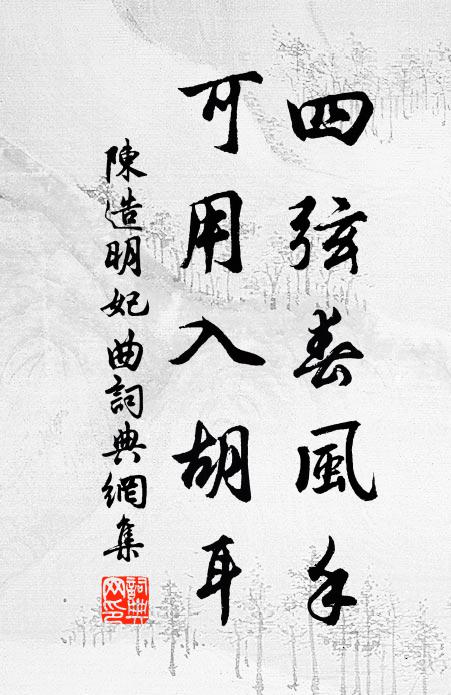 四弦春風手
可用入胡耳
陳造明妃曲詞典網集
詞典網印